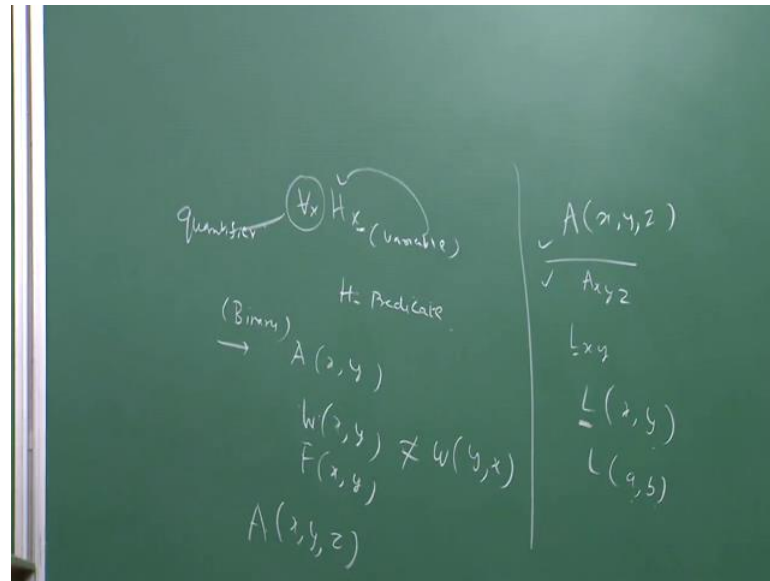 quantifier ∀x Hx (variable)
H = Predicate
(Binary)
→ A(x, y)
W(x, y) ≠ W(y, x)
F(x, y)
A(x, y, z)
✓ A(x, y, z)
✓ Axyz
Lxy
L(x, y)
L(a, b)